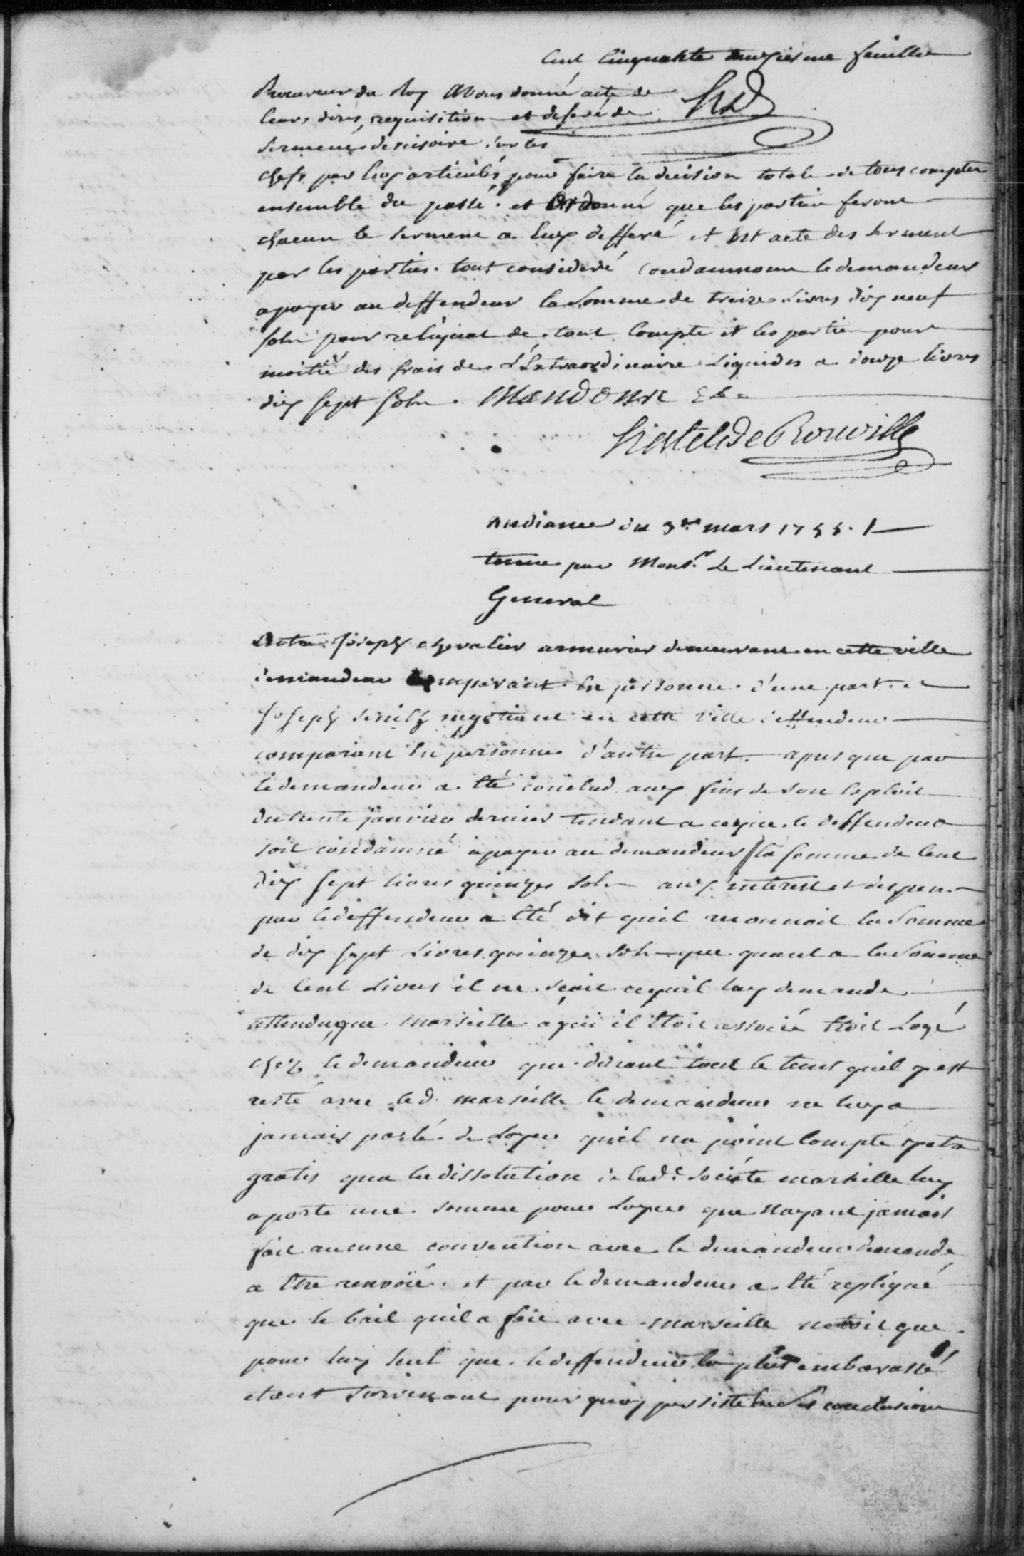 Cent Cinquante deuxiesme feuille
Procureur du Roy avons donné acte de
leurs dires, requisition et defere de HR
serment decisoire sur les
chefs par luy articulés pour faire la decision totale de tous comptes
ensemble du passé et ordonné que les parties feront
chacun le serment a luy defferé et est acte des serment
par les parties. tout consideré Condamnons le demandeur
a payer au deffendeur la somme de treize Livres dix neuf
sols pour reliquat de tout Compte et les partie pour
moitié des frais de L'Extraordinaire Liquidés a douze livres
dix sept sols. Mandons &c.
hertel de Rouville
Audiance du 3e mars 1755./.
tenue par Monsr. Le Lieutenant
General
Entre Joseph chevalier armurier demeurant en cette ville
demandeur comparant en personne d'une part. et
Joseph negotiant en cette ville deffendeur
comparant en personne d'autre part. apres que par
le demandeur a été conclud aux fins de son Exploit
du trente janvier dernier tendant a ce que le deffendeur
soit condamné a payer au demandeur la somme de Cent
dix sept livres quinze sols aux interest et depens
par le deffendeur a été dit quil reconnoit la somme
de dix sept Livres quinze sols que quant a la somme
de Cent Livres il ne sçait ce quil luy demande
attendu que marseille a qui il Etoit associé Etoit Logé
chez le demandeur que durant tout le tems quil y est
resté avec led. marseille le demandeur ne luy a
jamais parlé de Loyer quil na point Compté
gratis qua la dissolution de lade. Société marseille luy
a porté une somme pour Loyer que nayant jamais
fait aucune convention avec le demandeur demande
a Etre renvoié. et par le demandeur a été repliqué
que le bail quil a fait avec marseille netoit que
pour luy seul que le deffendeur la plus embarassé
etant survenant pourquoy persiste en ses conclusions